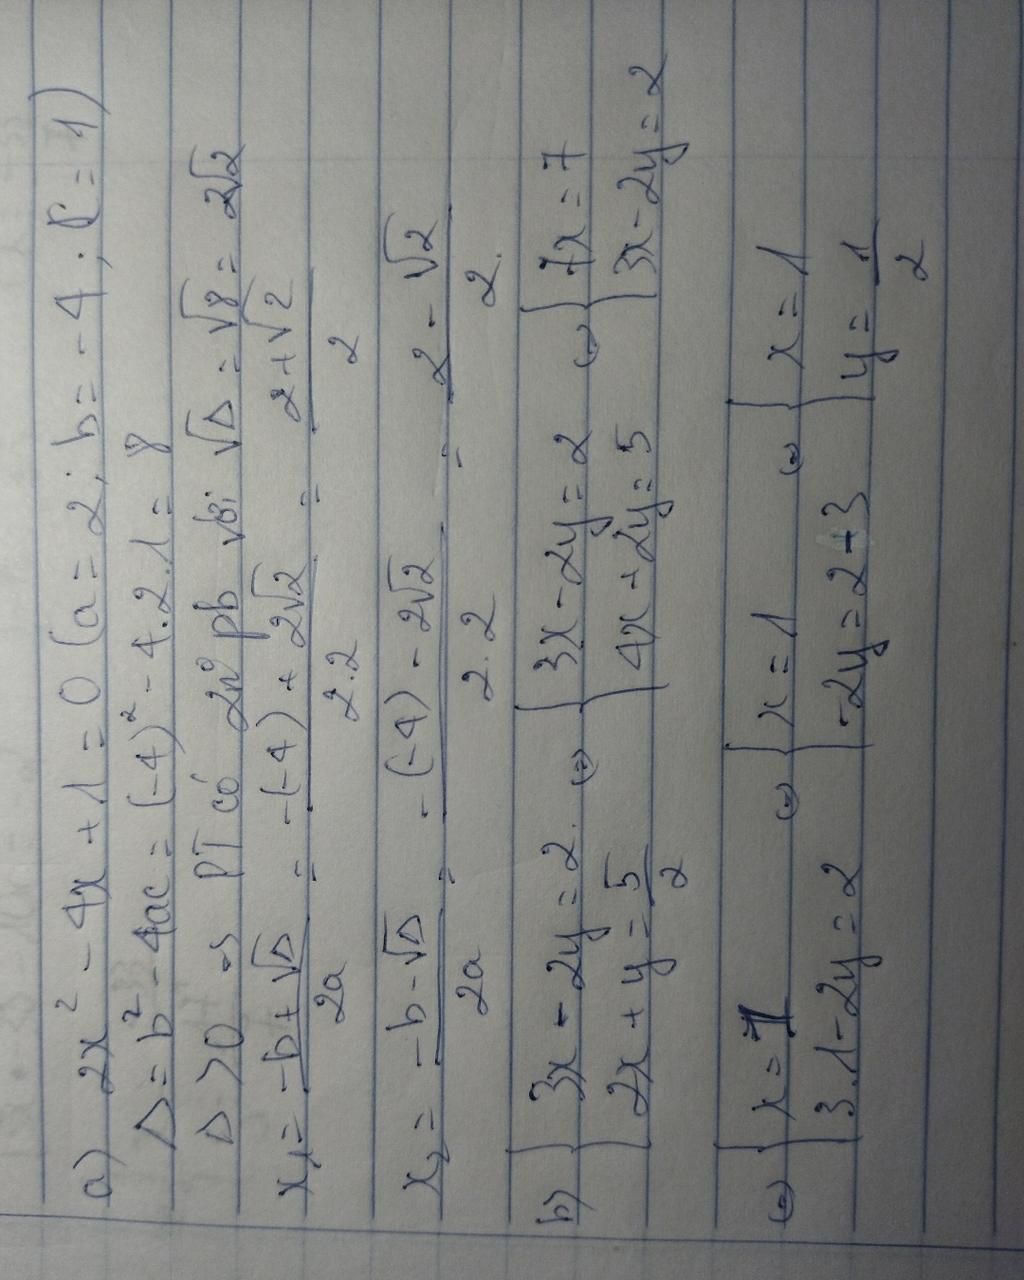 a) 2x² - 4x + 1 = 0 (a = 2; b = -4; c = 1)
Δ = b² - 4ac = (-4)² - 4.2.1 = 8
Δ > 0 → PT có 2n° pb với √Δ = √8 = 2√2
x₁ = (-b + √Δ)/(2a) = (-(-4) + 2√2)/(2.2) = (2 + √2)/2
x₂ = (-b - √Δ)/(2a) = (-(-4) - 2√2)/(2.2) = (2 - √2)/2.
b) { 3x - 2y = 2. ⇔ { 3x - 2y = 2 ⇔ { 7x = 7
2x + y = 5/2 4x + 2y = 5 3x - 2y = 2
⇔ { x = 1 ⇔ { x = 1 ⇔ { x = 1
3.1 - 2y = 2 -2y = 2 - 3 y = 1/2